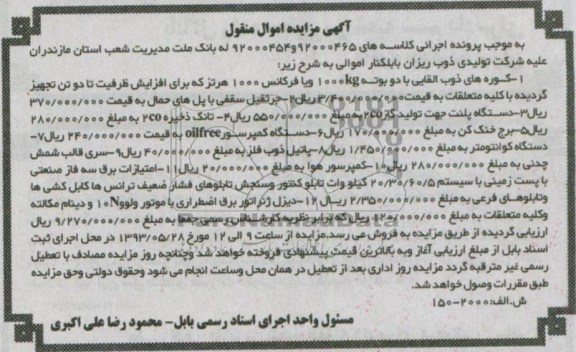 آگهی مزایده اموال منقول
به موجب پرونده اجرائی کلاسه های ۹۲۰۰۰۴۶۵و۹۲۰۰۰۴۵۴ له بانک ملت مدیریت شعب استان مازندران
علیه شرکت تولیدی ذوب ریزان بابلکنار اموالی به شرح زیر:
۱-کوره های ذوب القایی با دو بوته ۱۰۰۰kg ویا فرکانس ۱۰۰۰ هرتز که برای افزایش ظرفیت تا دو تن تجهیز
گردیده با کلیه متعلقات به قیمت ریال۲-جرثقیل سقفی با پل های حمال به قیمت ۳۷۰/۰۰۰/۰۰۰
ریال۳-دستگاه پلنت جهت تولید گاز co۲ به مبلغ ۵۵۰/۰۰۰/۰۰۰ ریال۴- تانک ذخیره co۲ به مبلغ ۲۸۰/۰۰۰/۰۰۰
ریال۵-برج خنک کن به مبلغ ۱۷۰/۰۰۰/۰۰۰ ریال۶-دستگاه کمپرسور oilfree به قیمت ۲۴۰/۰۰۰/۰۰۰ ریال۷-
دستگاه کوانتومتر به مبلغ ۱/۴۵۰/۰۰۰/۰۰۰ ریال۸-پاتیل ذوب فلز به مبلغ ۴۰/۰۰۰/۰۰۰ ریال۹-سری قالب شمش
چدنی به مبلغ ۲۸۰/۰۰۰/۰۰۰ ریال۱۰-کمپرسور هوا به مبلغ ۲۰/۰۰۰/۰۰۰ ریال۱۱-امتیازات برق سه فاز صنعتی
با پست زمینی با سیستم ۲۰/۳۰/۶۰/۵ کیلو وات تابلو کنتور وسنجش تابلوهای فشار ضعیف ترانس ها کابل کشی ها
وتابلوهای فرعی به مبلغ ۲/۳۵۰/۰۰۰/۰۰۰ ریال ۱۲-دیزل ژنراتور برق اضطراری با موتور ولوو۱۰N و دینام مکالته
وکلیه متعلقات به مبلغ ۱۲۰/۰۰۰/۰۰۰ ریال که برابر نظریه کارشناس رسمی جمعا به مبلغ ۹/۲۷۰/۰۰۰/۰۰۰ ریال
ارزیابی گردیده از طریق مزایده به فروش می رسد.مزایده از ساعت ۹ الی ۱۲ مورخ ۱۳۹۳/۰۵/۲۸ در محل اجرای ثبت
اسناد بابل از مبلغ ارزیابی آغاز وبه بالاترین قیمت پیشنهادی فروخته خواهد شد وچنانچه روز مزایده مصادف با تعطیل
رسمی غیر مترقبه گردد مزایده روز اداری بعد از تعطیل در همان محل وساعت انجام می شود وحقوق دولتی وحق مزایده
طبق مقررات وصول خواهد شد.
ش.الف:۲۰۰۰-۱۵۰
مسئول واحد اجرای اسناد رسمی بابل- محمود رضا علی اکبری